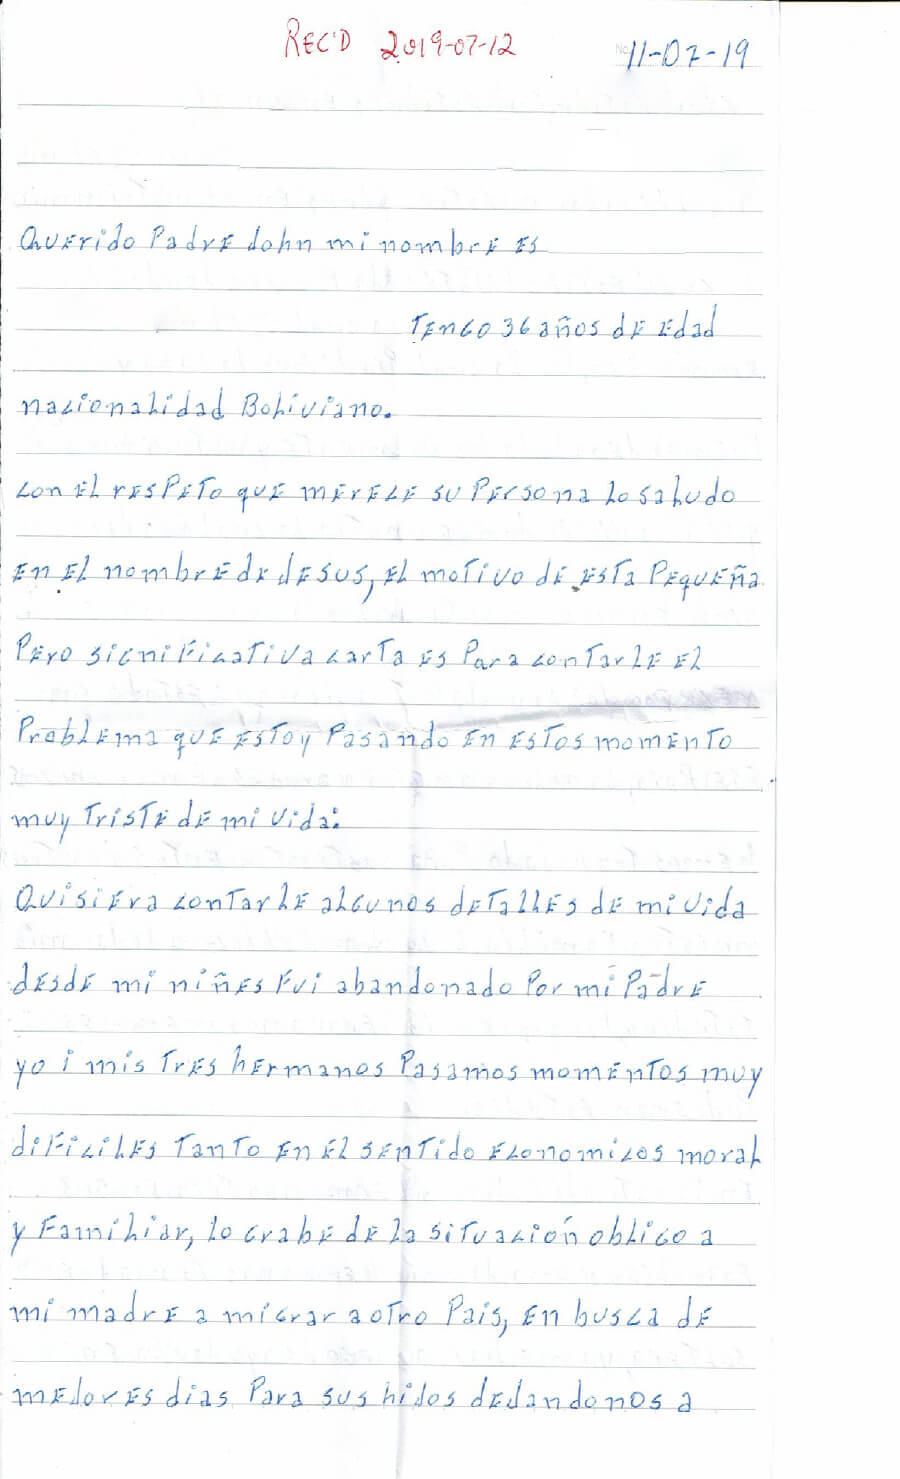 REC'D 2019-07-12
No. 11-07-19
Querido Padre John mi nombre es
Tengo 36 años de edad
nacionalidad Boliviano.
con el respeto que merece su persona lo saludo
en el nombre de Jesus, el motivo de esta pequeña
pero significativa carta es para contarle el
problema que estoy pasando en estos momento
muy triste de mi vida:
Quisiera contarle algunos detalles de mi vida
desde mi niñes fui abandonado por mi padre
yo i mis tres hermanos pasamos momentos muy
dificiles tanto en el sentido economicos moral
y familiar, lo grabe de la situación obligo a
mi madre a migrar a otro pais, en busca de
mejores dias para sus hijos dejandonos a